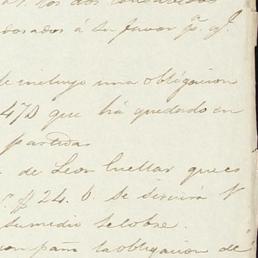 los dos
á su favor p.r q.l
le incluyo una obligacion
47D que há quedado en
partidas
de Leon Cuellar que es
$ 24. 6. Se servirá V
su medio se cobre.
la obligacion de